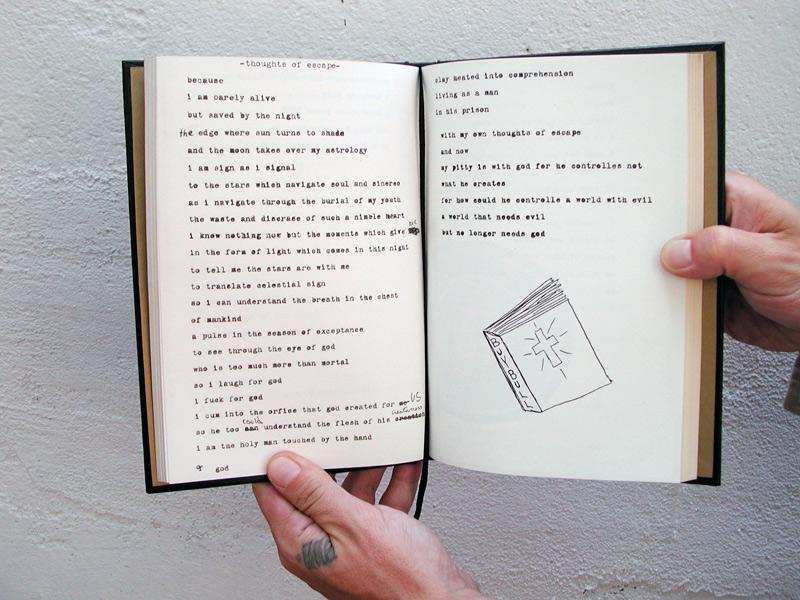 -thoughts of escape-
because
i am barely alive
but saved by the night
the edge where sun turns to shade
and the moon takes over my astrology
i am sign as i signal
to the stars which navigate soul and sinereo
as i navigate through the burial of my youth
the waste and discrase of such a nimble heart
i know nothing now but the moments which give
in the form of light which comes in this night
to tell me the stars are with me
to translate celestial sign
so i can understand the breath in the chest
of mankind
a pulse in the season of exceptance
to see through the eye of god
who is too much more than mortal
so i laugh for god
i fuck for god
i cum into the orfice that god created for me US
so he too can could understand the flesh of his creation creations
i am the holy man touched by the hand
of god
clay heated into comprehension
living as a man
in his prison
with my own thoughts of escape
and now
my pitty is with god for he controlles not
what he creates
for how could he controlle a world with evil
a world that needs evil
but no longer needs god
BUY BULL